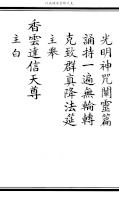 光明神咒闡靈篇
誦持一遍無輪轉
克致群真降法筵
主舉
香雲達信天尊
主白